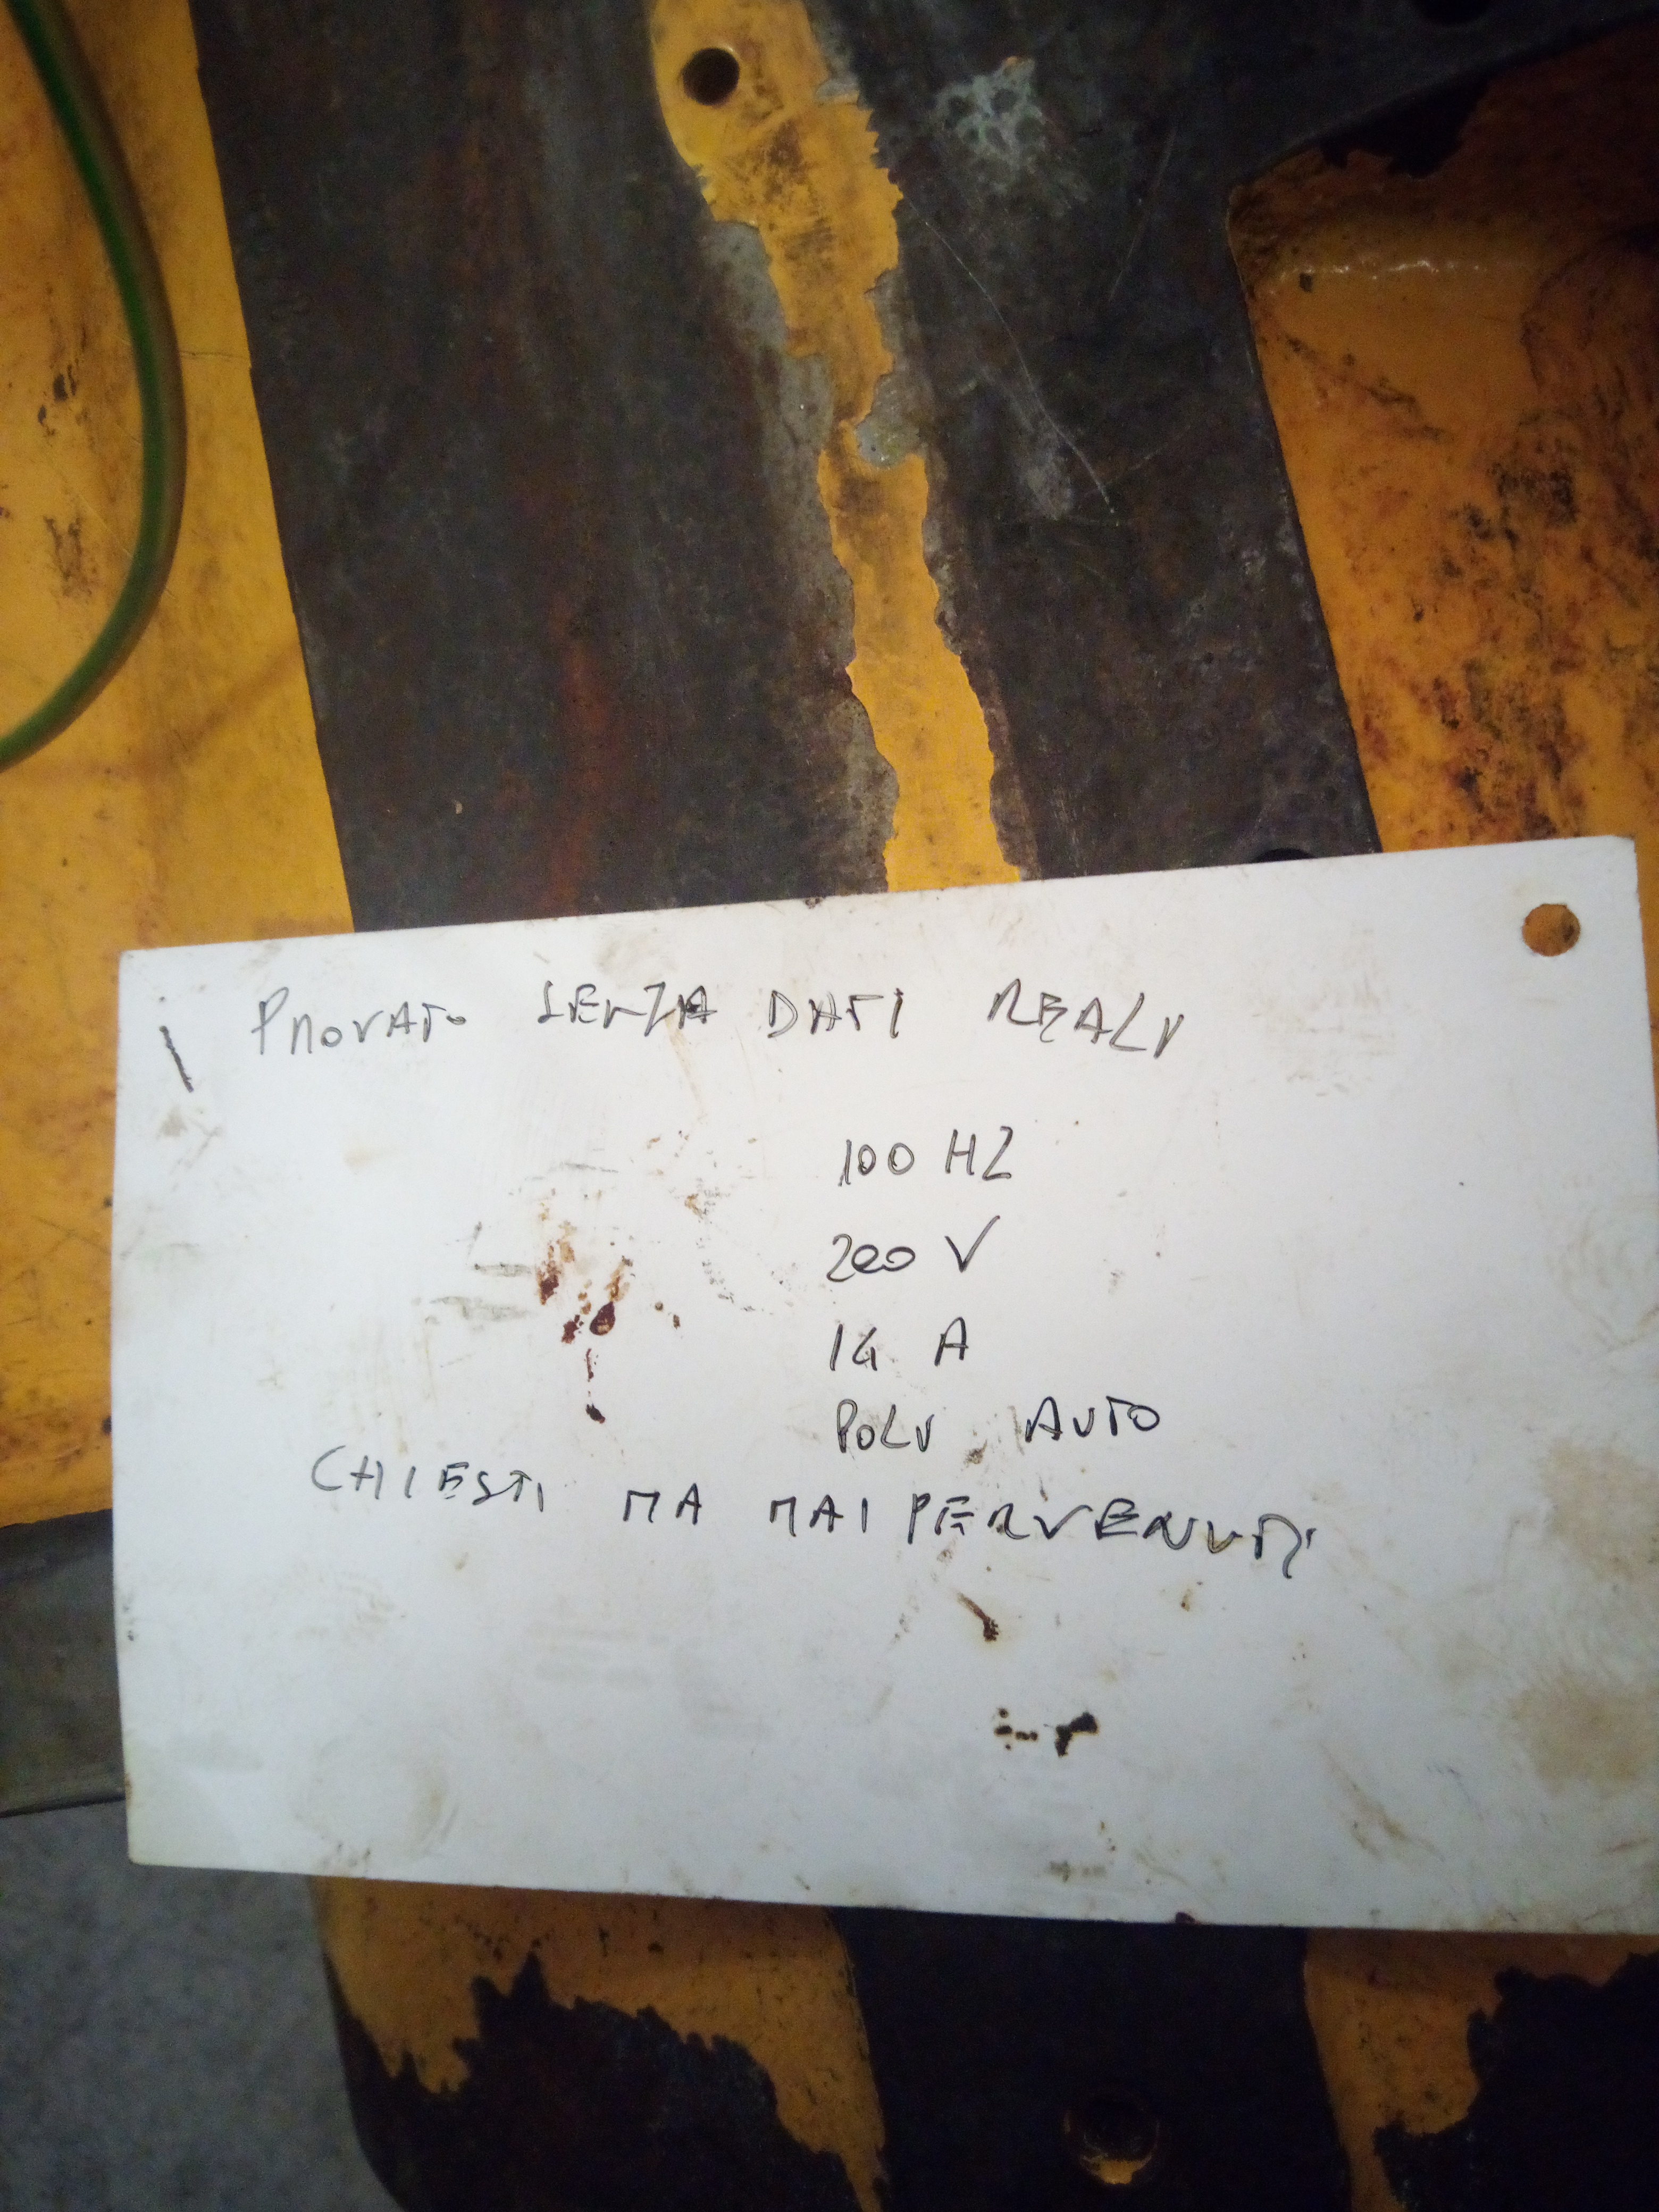 PROVATO SENZA DATI REALI
100 HZ
200 V
14 A
POLI AUTO
CHIESTI MA MAI PERVENUTI